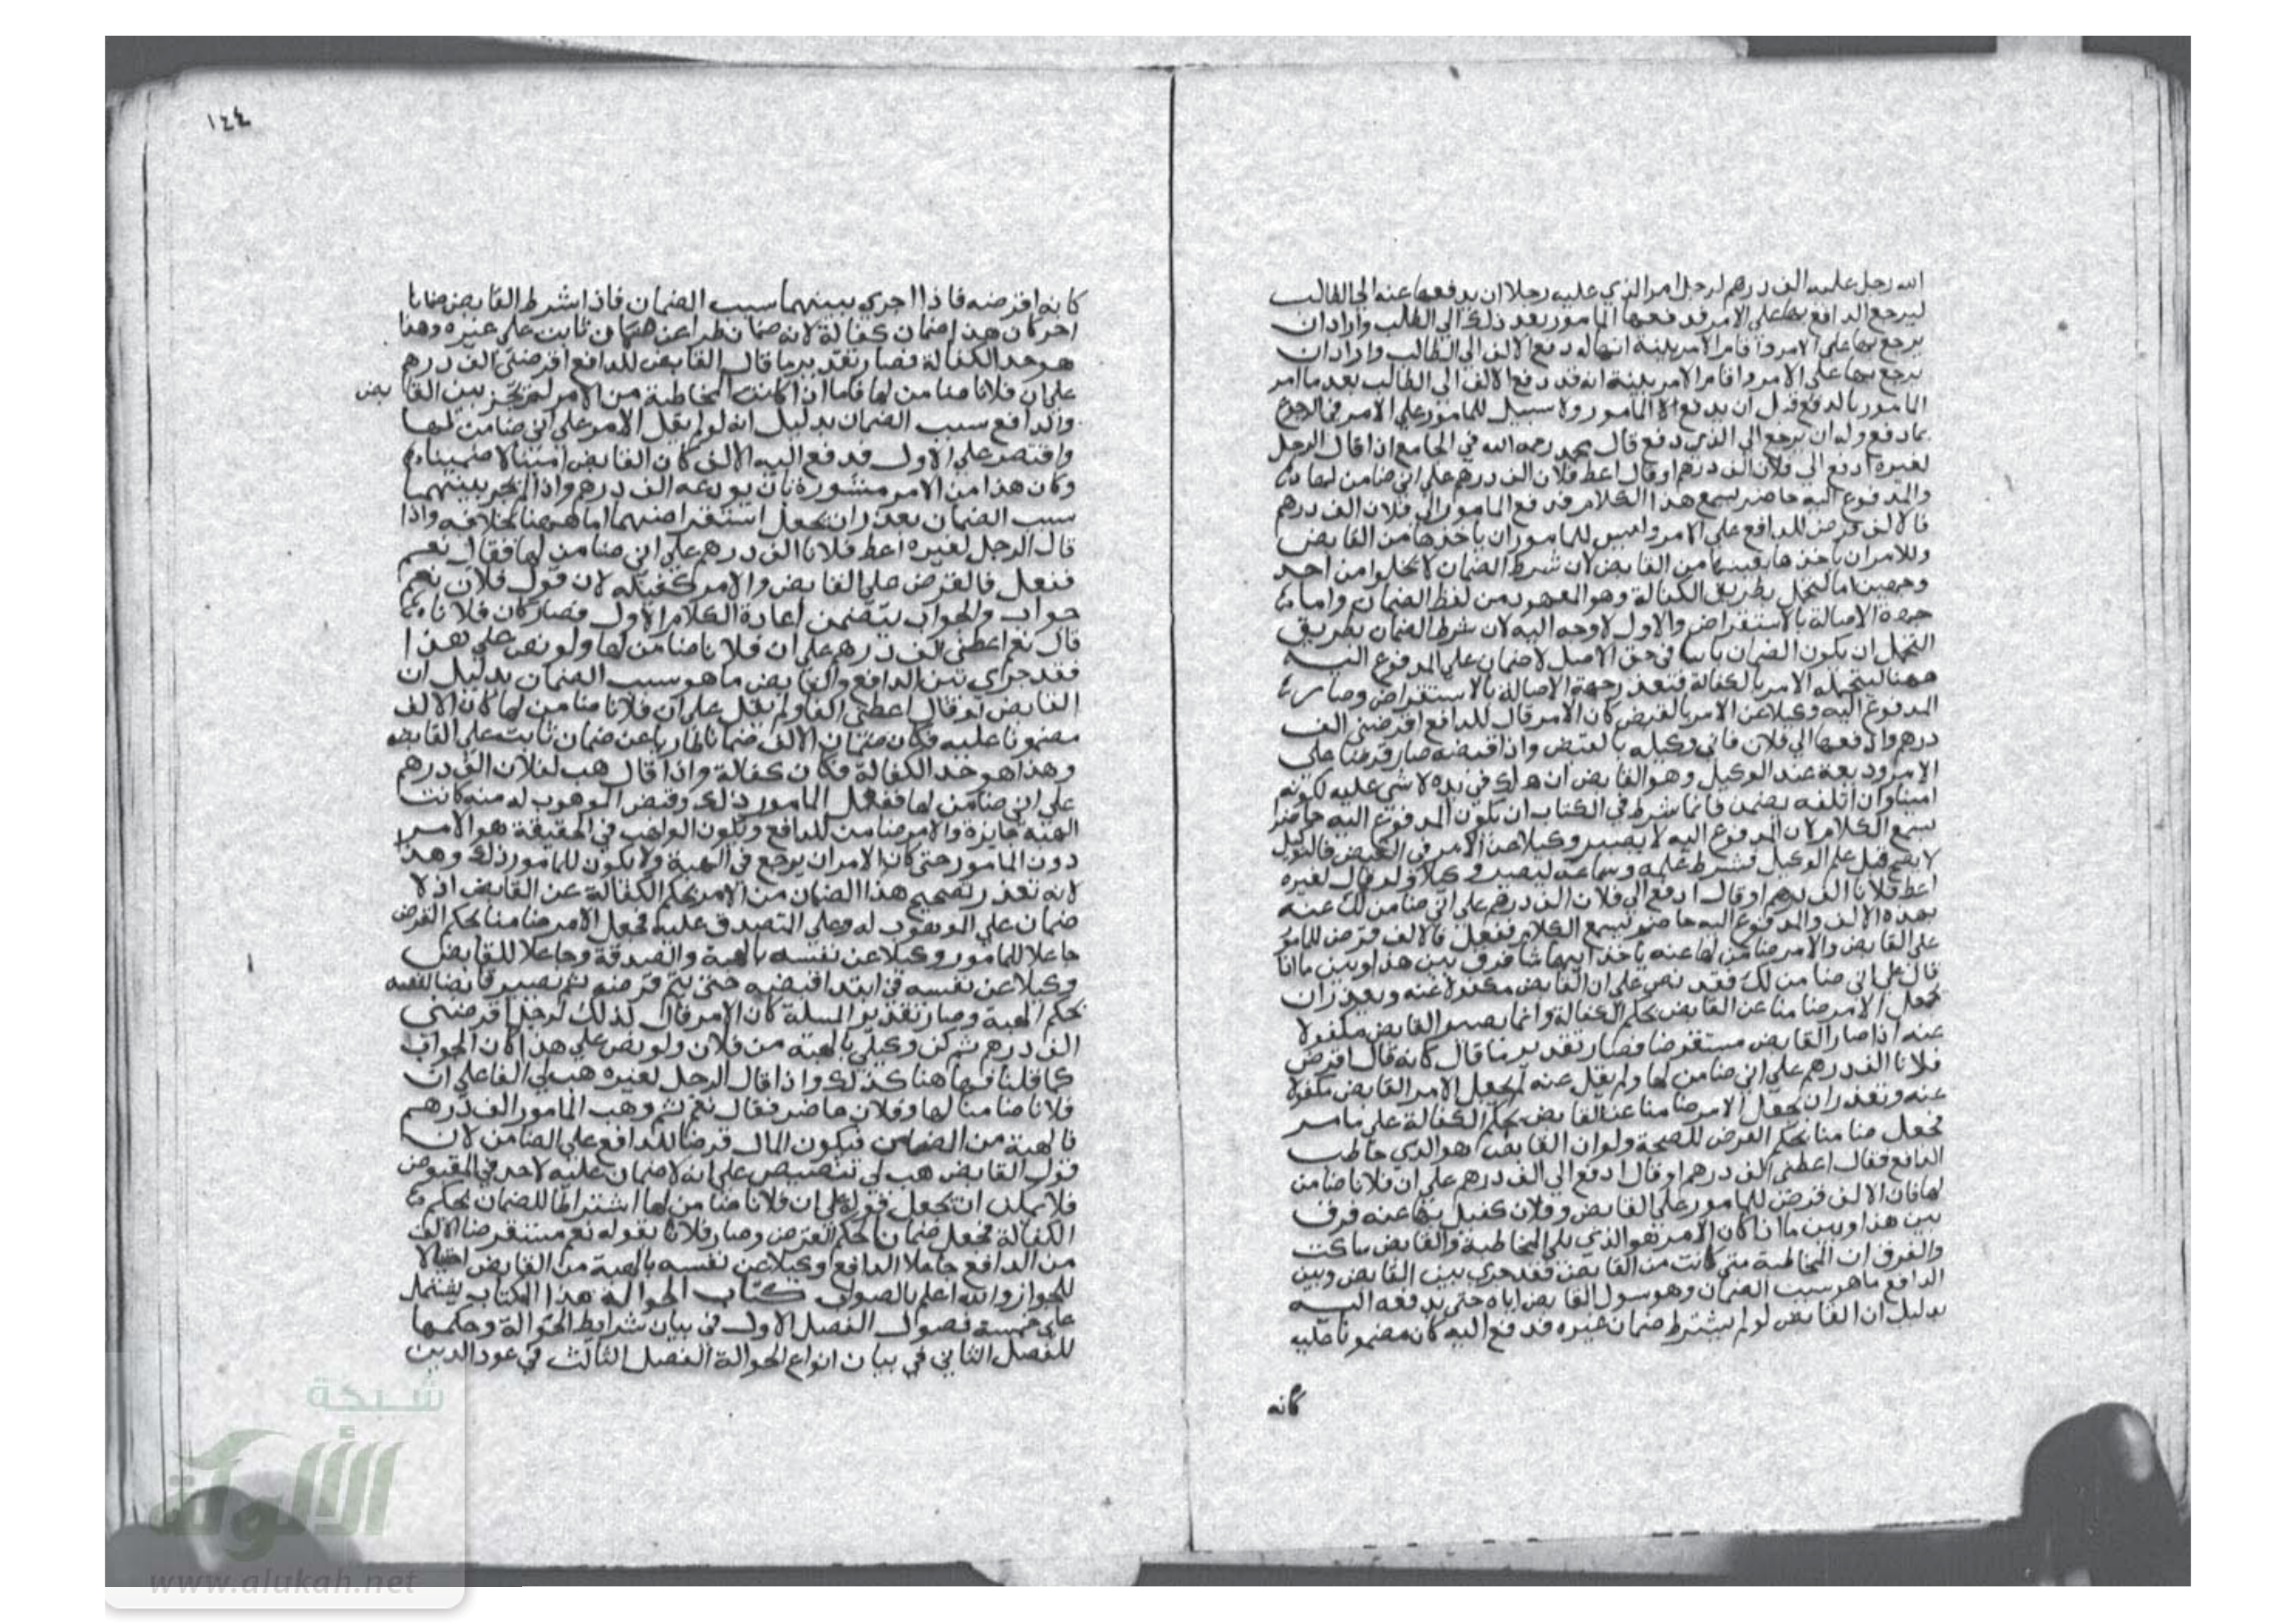 الله رجل عليه الف درهم لرجل امر الذي عليه رجلا ان يدفعها عنه الي الطالب
ليرجع الدافع بها علي الامر فدفعها المامور بعد ذلك الي الطالب واراد ان
يرجع بها علي الامر واقام الامر بينة انه دفع الالف الي الطالب واراد ان
يرجع بها علي الامر واقام الامر بينة انه قد دفع الالف الي الطالب بعد ما امر
المامور بالدفع قبل ان يدفع المامور ولا سبيل للمامور علي الامر في الرجوع
بما دفع وله ان يرجع الي الذي دفع قال محمد رحمه الله في الجامع اذا قال الرجل
لغيره ادفع الي فلان الف درهم او قال اعط فلان الف درهم علي اني ضامن لها
والمدفوع اليه حاضر يسمع هذا الكلام فدفع المامور الي فلان الف درهم
فالالف قرض للدافع علي الامر وليس للمامور ان ياخذها من القابض
وللامر ان ياخذها بعينها من القابض لان شرط الضمان لا يخلوا من احد
وجهين اما التحمل بطريق الكفالة وهو المعهود من لفظ الضمان واما
جهة الاصالة بالاستقراض والاول لا وجه اليه لان شرط الضمان بطريق
التحمل ان يكون الضمان في حق الاصيل لا ضمان علي المدفوع اليه
ههنا ليتحمله الامر بالكفالة فتعذر جهة الاصالة بالاستقراض وصار
المدفوع اليه وكيلا عن الامر بالقبض كان الامر قال للدافع اقرضني الف
درهم وادفعها الي فلان فاني وكيله بالقبض واذا قبضه صار قرضا علي
الامر وديعة عند الوكيل وهو القابض ان هلك في يده لا شي عليه لكونه
امينا وان اتلفه يضمن فانما شرط في الكتاب ان يكون المدفوع اليه حاضرا
يسمع الكلام لان المدفوع اليه لا يصير وكيلا عن الامر في القبض فالتوكيل
لا يصح قبل علم الوكيل فشرط علمه وسماعه ليصير وكيلا ولو قال لغيره
اعط فلانا الف درهم او قال ادفع الي فلان الف درهم علي اني ضامن لك عنه
بهذه الالف والمدفوع اليه حاضر يسمع الكلام ففعل فالالف قرض للمامور
علي القابض والامر ضامن لها عنه ياخذ ايهما شا فرق بين هذا وبين ما اذا
قال علي اني ضامن لك فقد نص علي ان القابض مكفولا عنه وتعذر ان
يجعل الامر ضامنا عن القابض بحكم الكفالة وانما يصير القابض مكفولا
عنه اذا صار القابض مستقرضا فصار تقدير ما قال كانه قال اقرض
فلانا الف درهم علي اني ضامن لها ولم يقل عنه لم يجعل الامر القابض مكفولا
عنه وتعذر ان يجعل الامر ضامنا عن القابض بحكم الكفالة علي ما مر
فجعل ضامنا بحكم القرض للصحة ولو ان القابض هو الذي خاطب
الدافع فقال اعطني الف درهم او قال ادفع الي الف درهم علي ان فلانا ضامن
لها فان الالف قرض للمامور علي القابض وفلان كفيل بها عنه فرق
بين هذا وبين ما اذا كان الامر هو الذي يلي المخاطبة والقابض ساكت
والفرق ان المخاطبة متي كانت من القابض فقد جري بين القابض وبين
الدافع ما هو سبب الضمان وهو سوال القابض اياه حتي يدفعه اليه
بدليل ان القابض لو لم يشترط ضمان غيره فدفع اليه كان مضمونا عليه
كانه
١٤٤
كانه اقرضه فاذا جري بينهما سبب الضمان فاذا شرط القابض ضمانا
اخر كان هذا ضمان كفالة لانه ضمان طرا عن ضمان ثابت علي غيره وهذا
هو حد الكفالة فصار تقدير ما قال القابض للدافع اقرضني الف درهم
علي ان فلانا ضامن لها فاما اذا كانت المخاطبة من الامر لم يجز بين القابض
والدافع سبب الضمان بدليل انه لو لم يقل الامر علي اني ضامن لها
واقتصر علي الاول فدفع اليه الالف كان القابض امينا لا ضمينا
وكان هذا من الامر مشورة بان يودعه الف درهم واذا لم يجر بينهما
سبب الضمان تعذر ان يجعل استقراضهما اما ههنا بخلافه واذا
قال الرجل لغيره اعط فلانا الف درهم علي اني ضامن لها فقال نعم
ففعل فالقرض علي القابض والامر كفيله لان قول فلان نعم
جواب والجواب يتضمن اعادة الكلام الاول فصار كان فلانا
قال نعم اعطني الف درهم علي ان فلانا ضامن لها ولو نص علي هذا
فقد جري بين الدافع والقابض ما هو سبب الضمان بدليل ان
القابض لو قال اعطني الفا ولم يقل علي ان فلانا ضامن لها كان الالف
مضمونا عليه فكان ضمان الالف ضمانا طاريا عن ضمان ثابت علي القابض
وهذا هو حد الكفالة فكان كفالة واذا قال هب لفلان الف درهم
علي اني ضامن لها ففعل المامور ذلك وقبض الموهوب له منه كانت
الهبة جايزة والامر ضامن للدافع ويكون الواهب في الحقيقة هو الامر
دون المامور حتي كان الامر ان يرجع في الهبة ولا يكون للمامور ذلك وهذا
لانه تعذر تصحيح هذا الضمان من الامر بحكم الكفالة عن القابض اذ لا
ضمان علي الموهوب له وعلي المتصدق عليه فجعل الامر ضامنا بحكم القرض
جاعلا للمامور وكيلا عن نفسه بالهبة والصدقة وجاعلا للقابض
وكيلا عن نفسه في ابتدا قبضه حتي يتم قرضه ثم يصير قابضا لنفسه
بحكم الهبة وصار تقدير المسلة كان الامر قال لذلك الرجل اقرضني
الف درهم ثم كن وكيلي بالهبة من فلان ولو نص علي هذا كان الجواب
كما قلنا فهاهنا كذلك واذا قال الرجل لغيره هب لي الفا علي ان
فلانا ضامنا لها وفلان حاضر فقال نعم ثم وهب المامور الف درهم
فالهبة من الضامن فيكون المال قرضا للدافع علي الضامن لان
قول القابض هب لي تنصيص علي انه لا ضمان عليه لاحد في المقبوض
فلا يمكن ان يجعل قوله علي ان فلانا ضامن لها اشتراطا للضمان بحكم
الكفالة فجعل ضمانا بحكم القرض وصار فلانا بقوله نعم مستقرضا الالف
من الدافع جاعلا الدافع وكيلا عن نفسه بالهبة من القابض احتيالا
للجواز والله اعلم بالصواب كتاب الحوالة هذا الكتاب يشتمل
علي خمسة فصول الفصل الاول في بيان شرايط الحوالة وحكمها
الفصل الثاني في بيان انواع الحوالة الفصل الثالث في عود الدين
شبكة
الألوكة
www.alukah.net